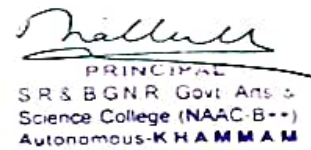 PRINCIPAL
S.R & BGNR Govt Arts &
Science College (NAAC-B++)
Autonomous-KHAMMAM